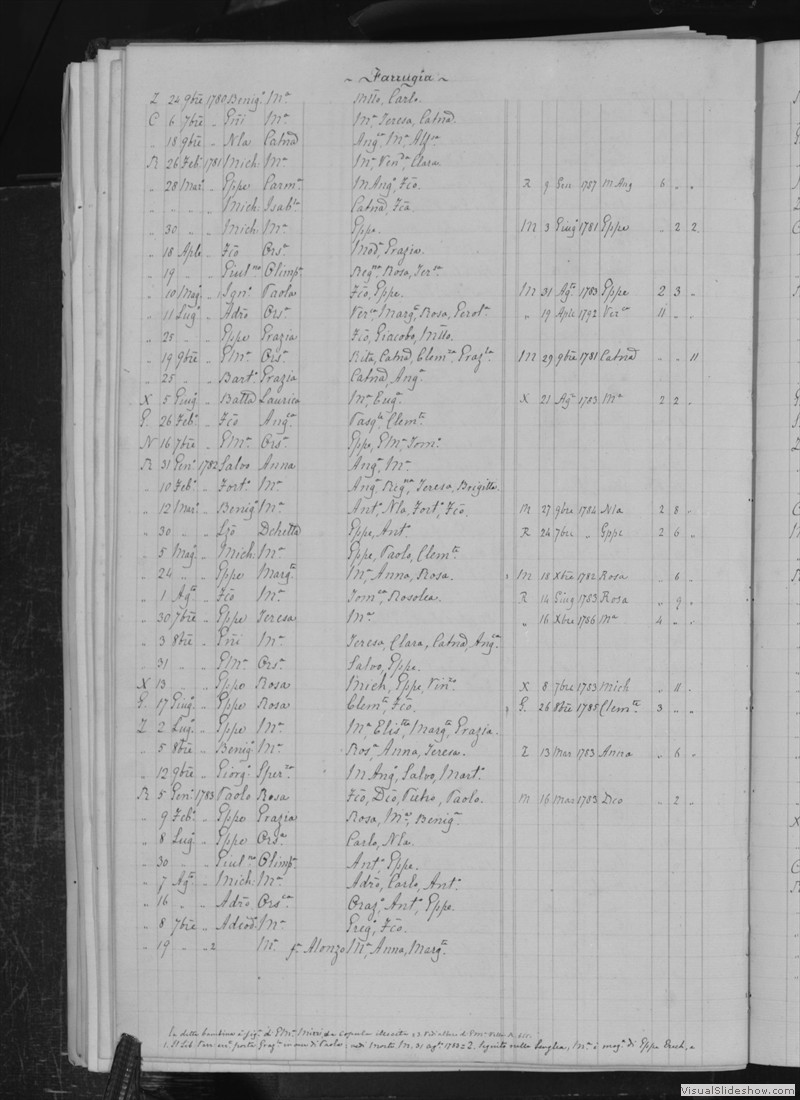 ~ Farrugia ~
Z 24 9bre 1780 Benig.o M.a Nitto, Carlo.
C 6 7bre „ Gñi M.a M.a Teresa, Catnã.
„ 18 9bre „ Nla Catnã Ang.o M.a
R 26 Feb.o 1781 Mich: M.a M.a Ven.a Clara.
„ 28 Mar. „ Gppe Carm.a M Ang.o Fcõ. R 9 Gen 1787 M Ang 6 „ „
„ „ „ „ Mich: Isab.la Catnã, Fcã.
„ 30 „ „ Mich: M.a Gppe. M 3 Giug 1781 Gppe „ 2 2
„ 18 Aple „ Fcõ Ors.a Grazia.
„ 19 „ „ Giul.no Olimp.a Reg.na Rosa, Ter.sa
„ 10 Mag. „ Ign.o Paola Fcõ, Gppe. M 31 Ag.o 1783 Gppe 2 3 „
„ 11 Lug.o „ Adrõ Ors.a Marg.a Rosa, „ 19 Aple 1792 11 „ „
„ 25 „ „ Gppe Grazia Fcõ, Giacobo, Nitto.
„ 19 9bre „ GM.a Ors.a Rita, Catnã, Clem.za Graz.la M 29 9bre 1781 Catnã „ „ 11
„ 25 „ „ Bart.o Grazia Catnã, Ang.a
X 5 Giug „ Batta Laurica M.a Eug.a X 21 Ag.o 1783 M.a 2 2 „
G. 26 Feb.o „ Fcõ Ang.ca Pasq.le Clem.te
N 16 7bre „ GM.a Ors.a Gppe, GM.a Tom.o
R 31 Gen.o 1782 Salvo Anna Ang.o M.a
„ 10 Feb.o „ Fort.o M.a Ang.a Reg.na Teresa, Brigitta.
„ 12 Mar. „ Benig.o M.a Ant.o Nla, Fort.o Fcõ. M 27 9bre 1784 Nla 2 8 „
„ 30 „ „ Lzõ Dchetta Gppe, Ant.o R 24 7bre „ Gppe 2 6 „
„ 5 Mag. „ Mich: M.a Gppe, Paolo, Clem.te
„ 24 „ „ Gppe Marg.ta M.a Anna, Rosa. M 18 Xbre 1782 Rosa „ 6 „
„ 1 Ag.o „ Fcõ M.a Tom.sa Rosolea. R 14 Giug 1783 Rosa „ 9 „
„ 30 7bre „ Gppe Teresa M.a „ 16 Xbre 1786 M.a 4 „ „
„ 3 8bre „ Gñi M.a Teresa, Clara, Catnã, Ang.ca
„ 31 „ „ GM.a Ors.a Salvo, Gppe.
X 13 „ „ Gppe Rosa Mich, Gppe, Vin.zo X 8 7bre 1783 Mich „ 11 „
G. 17 Giug.o „ Gppe Rosa Clem.te Fcõ. G. 26 8bre 1785 Clem.te 3 „ „
Z 2 Lug.o „ Gppe M.a M.a Elis.tta Marg.ta Grazia.
„ 5 8bre „ Benig.o M.a Ros.a Anna, Teresa. Z 13 Mar 1783 Anna „ 6 „
„ 12 9bre „ Giorg.o Sper.za M Ang.o Salvo, Mart.o
R 5 Gen.o 1783 Paolo Rosa Fcõ, Dcõ, Pietro, Paolo. M 16 Mar 1783 Dco „ 2 „
„ 9 Feb.o „ Gppe Grazia Rosa, M.a Benig.a
„ 8 Lug.o „ Gppe Ors.a Carlo, Nla.
„ 30 „ „ Giul.no Olimp.a Ant.o Gppe.
„ 7 Ag.o „ Mich: M.a Adrõ, Carlo, Ant.o
„ 16 „ „ Adrõ Ors.a Oraz.o Ant.o Gppe.
„ 8 7bre „ Adeod.o M.a Greg.o Fcõ.
„ 19 „ „ 2 M.a Alonzo M.a Anna, Marg.ta
VisualSlideshow.com